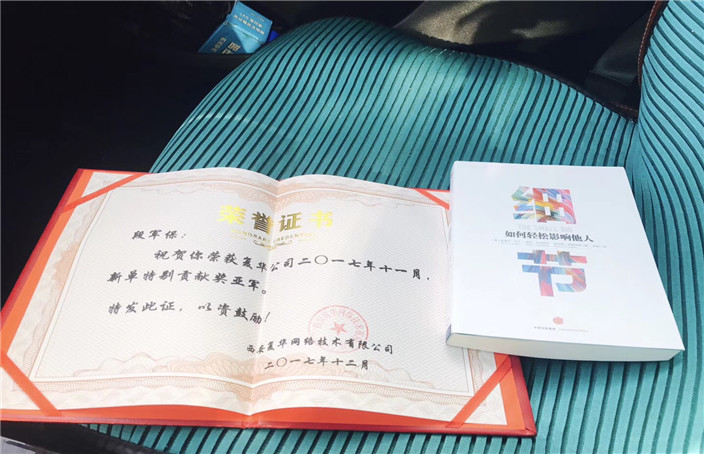 荣誉证书
段军保:
祝贺你荣获复华公司二〇一七年十一月,
新单特别贡献奖亚军。
特发此证,以资鼓励!
西安复华网络技术有限公司
二〇一七年十二月
细
THE SMALL BIG
如何轻松影响他人
节